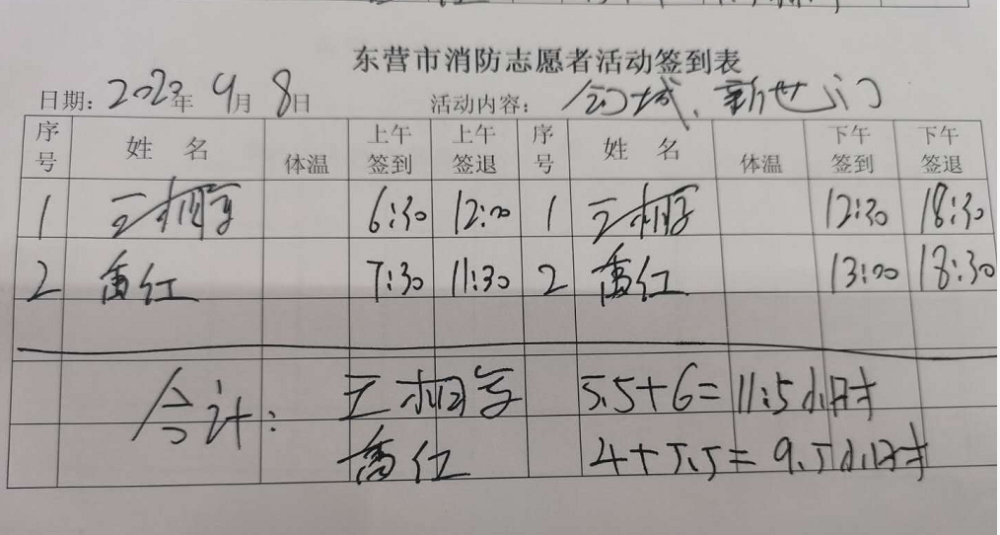 东营市消防志愿者活动签到表
日期: 2023年 9月 8日 活动内容: 新世门
序号 姓 名 体温 上午签到 上午签退 序号 姓 名 体温 下午签到 下午签退
1 6:30 12:00 1 12:30 18:30
2 7:30 11:30 2 13:00 18:30
合计: 5.5+6=11.5小时
4+5.5=9.5小时